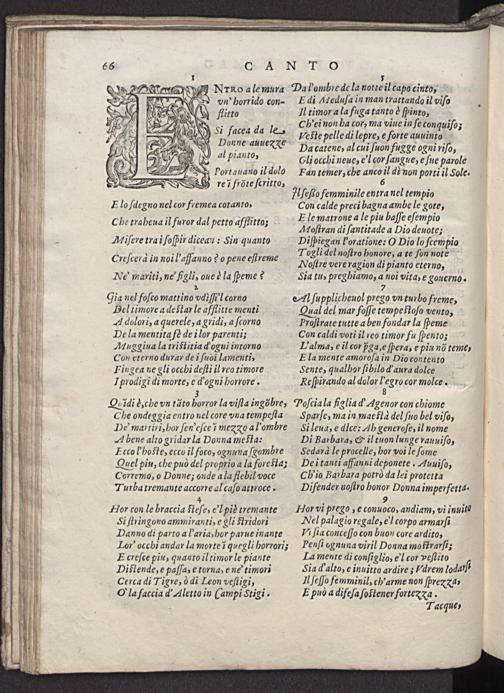 66
CANTO
1
ENTRO a le mura
vn' horrido con-
flitto
Si facea da le
Donne auuezze
al pianto,
Portauano il dolo
re ĩ frõte scritto,
E lo sdegno nel cor fremea cotanto.
Che traheua il furor dal petto afflitto;
Misere tra i sospir dicean: Sin quanto
Crescerà in noi l'affanno? o pene estreme
Ne' mariti, ne' figli, oue è la speme?
2
Gia nel fosco mattino vdissi'l corno
Del timore a destar le afflitte menti
A dolori, a querele, a gridi, a scorno
De la mentita fè de i lor parenti;
Muggiua la tristitia d'ogni intorno
Con eterno durar de i suoi lamenti,
Fingea ne gli occhi desti il reo timore
I prodigi di morte, e d'ogni horrore.
3
Quĩdi è, che vn tãto horror la vista ingõbre,
Che ondeggia entro nel core vna tempesta
De' martiri, hor sen'esce ĩ mezzo a l'ombre
A bene alto gridar la Donna mesta:
Ecco l'hoste, ecco il foco, ognuna sgombre
Quel piu, che può del proprio a la foresta;
Corremo, o Donne; onde a la flebil voce
Turba tremante accorre al caso attroce.
4
Hor con le braccia stese, e'l piè tremante
Si stringono ammiranti, e gli stridori
Danno di parto a l'aria, hor parue inante
Lor' occhi andar la morte ĩ quegli horrori;
E cresce piu, quanto il timor le piante
Distende, e passa, e torna, e ne' timori
Cerca di Tigre, ò di Leon vestigi,
O' la faccia d'Aletto in Campi Stigi.
5
Da l'ombre de la notte il capo cinto,
E di Medusa in man trattando il viso
Il timor a la fuga tanto è spinto,
Ch'ei non ha cor, ma viue in se conquiso;
Veste pelle di lepre, e forte auuinto
Da catene, al cui suon fugge ogni riso,
Gli occhi neue, e'l cor sangue, e sue parole
Fan temer, che anco il dì non porti il Sole.
6
Il sesso femminile entra nel tempio
Con calde preci bagna ambe le gote,
E le matrone a le piu basse esempio
Mostran di santitade a Dio deuote;
Dispiegan l'oratione: O Dio lo scempio
Togli del nostro honore, a te son note
Nostre vere ragion di pianto eterno,
Sia tu, preghiamo, a noi vita, e gouerno.
7
Al supplicheuol prego vn turbo freme,
Qual del mar fosse tempestoso vento,
Prostrate tutte a ben fondar la speme
Con caldi voti il reo timor fu spento;
L'alma, e il cor p̃ga, e spera, e piu nõ teme,
E la mente amorosa in Dio contento
Sente, qual hor sibilo d'aura dolce
Respirando al dolor l'egro cor molce.
8
Poscia la figlia d'Agenor con chiome
Sparse, ma in maestà del suo bel viso,
Si leua, e dice: Ah generose, il nome
Di Barbara, & il euon lunge rauuiso,
Sedarà le procelle, hor voi le some
De i tanti affanni deponete. Auuiso,
Ch'io Barbara potrò da lei protetta
Difender nostro honor Donna imperfetta.
9
Hor vi prego, e conuoco, andiam, vi inuito
Nel palagio regale, e'l corpo armarsi
Vi sia concesso con buon core ardito,
Pensi ognuna viril Donna mostrarsi;
La mente di consiglio, e'l cor vestito
Sia d'alto, e inuitto ardire; Vdrem lodarsi
Il sesso femminil, ch'arme non sprezza,
E può a difesa sostener fortezza.
Tacque,